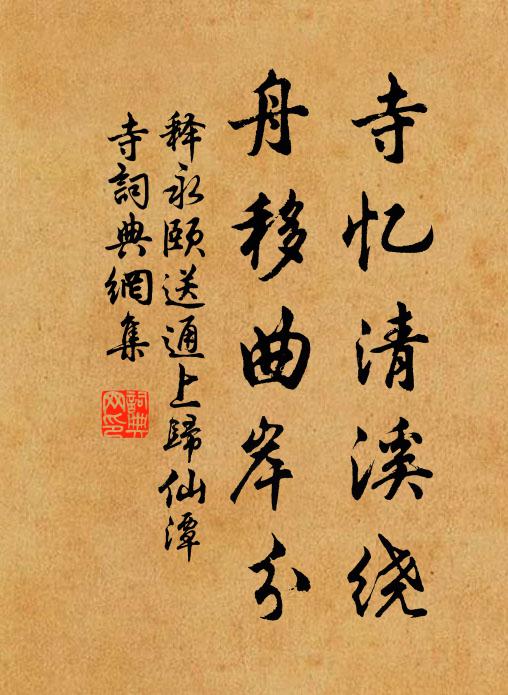 寺忆清溪绕
舟移曲岸分
释永颐送通上歸仙潭
寺詞典網集
詞典网印